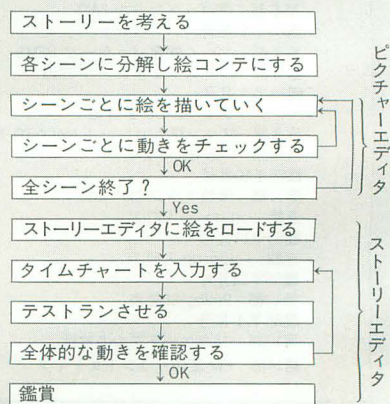 ストーリーを考える
各シーンに分解し絵コンテにする
シーンごとに絵を描いていく
シーンごとに動きをチェックする
OK
全シーン終了?
Yes
ピクチャーエディタ
ストーリーエディタに絵をロードする
タイムチャートを入力する
テストランさせる
全体的な動きを確認する
OK
鑑賞
ストーリーエディタ